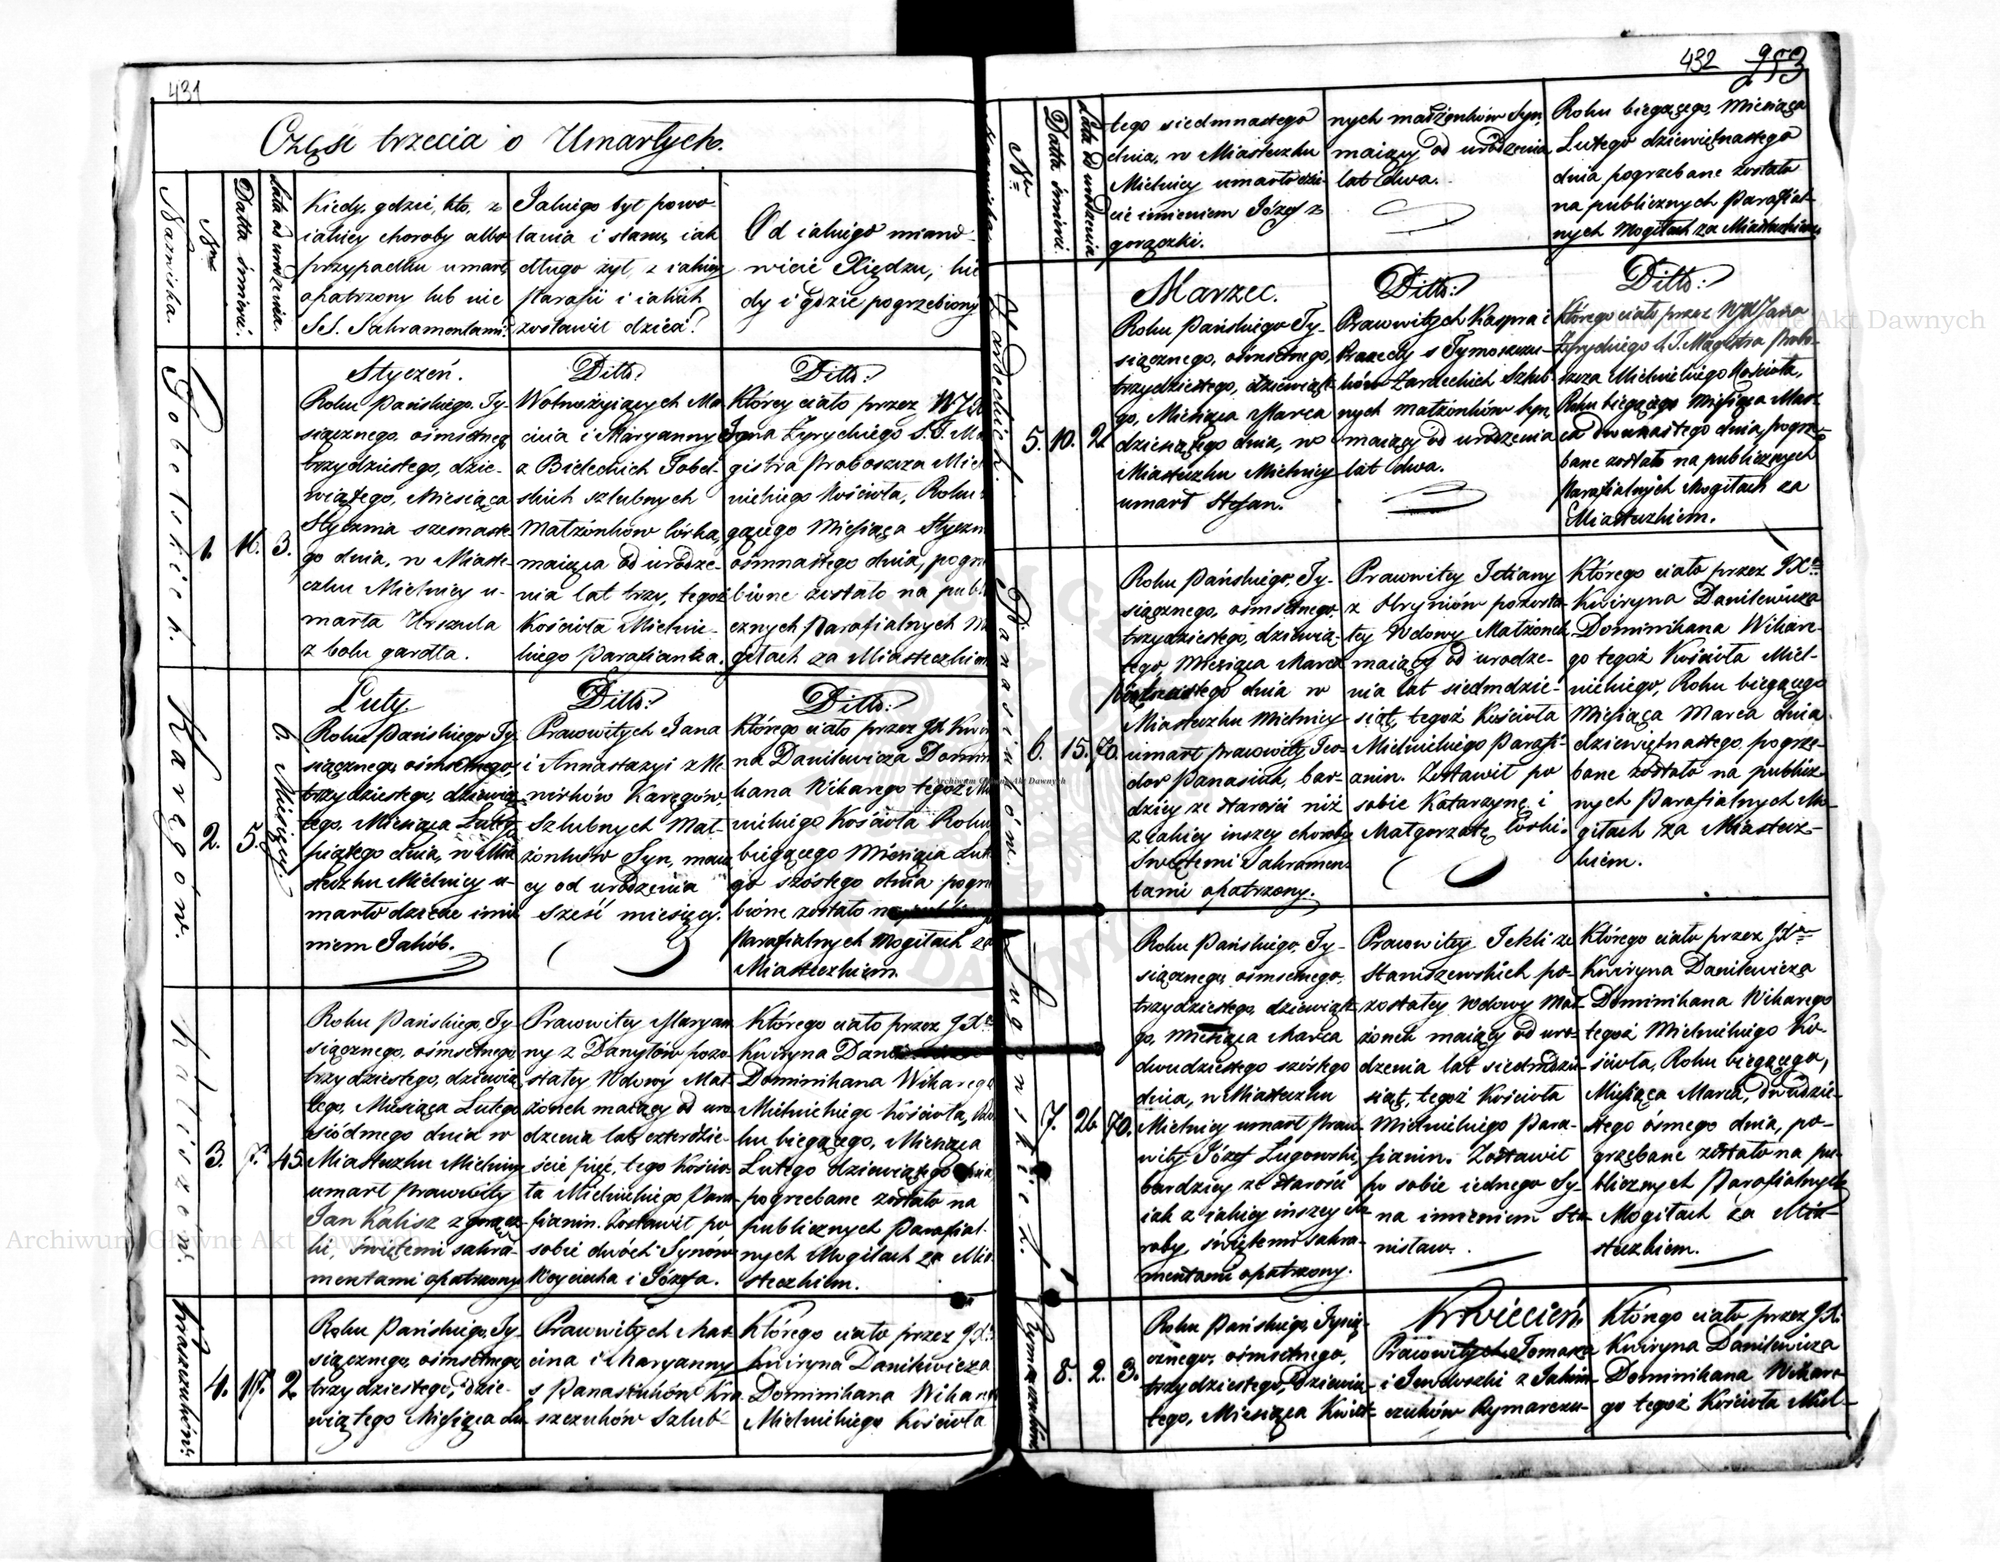 431
Część trzecia o Umarłych.
Nazwiska.
Nro
Datta śmierci.
Lata od urodzenia.
Kiedy, gdzie, kto, z
iakiey choroby albo
przypadku umarł,
opatrzony lub nie
SS. Sakramentami?
Jakiego był powo-
łania i stanu, iak
długo żył, z iakiey
Parafii i iakich
zostawił dzieci?
Od iakiego miano-
wicie Xiędza, kie
dy i gdzie pogrzebiony
Gobelskich.
1.
16.
3.
Styczeń.
Roku Pańskiego Ty-
siącznego, ośmsetneg
trzydziestego, dzie-
wiątego, Miesiąca
Stycznia szesnaste-
go dnia, w Miaste-
czku Mielnicy u-
marła Urszula
z bolu gardła.
Ditto:
Wolnożyiących Ma-
cieia i Maryanny
z Bieleckich Gobel-
skich szlubnych
Małżonków Córka,
maiąca od urodze-
nia lat trzy, tegoż
Kościoła Mielnic-
kiego Parafianka.
Ditto:
Którey ciało przez WJX
Jana Żyryckiego S. J. Ma
gistra Proboszcza Miel
nickiego Kościoła, Roku
gącego Miesiąca Styczn
ośmnastego dnia, pogrze
bione zostało na publi
cznych Parafialnych Mo
giłach za Miasteczkiem
Karęgów.
2.
5.
6. Miesięcy
Luty
Roku Pańskiego Ty-
siącznego, ośmsetnego,
trzydziestego, dziewią
tego, Miesiąca Lutego
piątego dnia, w Mia
steczku Mielnicy u-
marło dziecie imie
niem Jakób.
Ditto:
Prawowitych Jana
i Annastazyi z Me-
nirków Karęgów,
Szlubnych Mał-
żonków Syn, maią
cy od urodzenia
sześć miesięcy.
Ditto:
Którego ciało przez JX Kwiry
na Danilewicza Domini
kana Wikarego tegoż Mi
nickiego Kościoła Roku
biegącego Miesiąca Lute
go szóstego dnia pogrze
bione zostało na
Parafialnych Mogiłach za
Miasteczkiem.
Kaliszów.
3.
7.
45.
Roku Pańskiego, Ty-
siącznego, ośmsetnego
trzydziestego, dziewią
tego, Miesiąca Lutego
siódmego dnia w
Miasteczku Mielnicy
umarł prawowity
Jan Kalisz z gorącz-
ki, świętemi sakra-
mentami opatrzony
Prawowitey Maryan
ny z Danyłów pozo-
stałey Wdowy Mał-
żonek maiący od uro
dzenia lat czterdzie-
ście pięć, tego Kościo-
ła Mielnickiego Para-
fianin. Zostawił po
sobie dwóch Synów
Woyciecha i Józefa.
Którego ciało przez JXa
Kwiryna
Dominikana Wikarego
Mielnickiego Kościoła, Ro
ku biegącego, Miesiąca
Lutego dziewiątego dnia,
pogrzebane zostało na
publicznych Parafial-
nych Mogiłach za Mia-
steczkiem.
Kraszuków:
4.
17.
2
Roku Pańskiego, Ty-
siącznego, ośmsetnego
trzydziestego, dzie-
wiątego Miesiąca Lu
Prawowitych Mar-
cina i Maryanny
s Panasiuków Kra
szczuków Szlub-
Którego ciało przez JXa
Kwiryna Danilewicza
Dominikana Wikarego
Mielnickiego Kościoła
432
953
Nro
Datta śmierci.
Lata od urodzenia
tego siedmnastego
dnia, w Miasteczku
Mielnicy umarło dzi-
cie imieniem Józef z
gorączki.
nych małżonków Syn,
maiący od urodzenia
lat dwa.
Roku biegącego, Miesiąca
Lutego dziewiętnastego
dnia pogrzebane zostało
na publicznych Parafial-
nych Mogiłach za Miasteczkiem
Zardeckich.
5.
10.
2.
Marzec.
Roku Pańskiego Ty-
siącznego, ośmsetnego,
trzydziestego, dziewiąt
go, Miesiąca Marca
dziesiątego dnia, w
Miasteczku Mielnicy
umarł Stefan.
Ditto:
Prawowitych Kaspra i
s Tymoszczu-
ków Zardeckich Szlub-
nych małżonków Syn,
maiący od urodzenia
lat dwa.
Ditto:
Którego ciało przez WX Jana
Żyryckiego S. Magistra Probo-
szcza Mielnickiego Kościoła,
Roku biegącego Miesiąca Mar-
ca dwunastego dnia, pogrze-
bane zostało na publicznych
Parafialnych Mogiłach za
Miasteczkiem.
Panasiuków.
6.
15.
70.
Roku Pańskiego, Ty-
siącznego, ośmsetnego
trzydziestego, dziewią-
tego, Miesiąca Marca
piętnastego dnia w
Miasteczku Mielnicy
umarł prawowity Teo
dor Panasiuk, bar-
dziey ze starości niż
z iakiey inszey choroby
Świętemi Sakramen-
tami opatrzony.
Prawowitey Tetiany
z Obryniów pozosta-
łey Wdowy Małżonek
maiący od urodze-
nia lat siedmdzie-
siąt, tegoż Kościoła
Mielnickiego Parafi-
anin. Zostawił po
sobie Katarzynę i
Małgorzatę Córki.
Którego ciało przez JXa
Kwiryna Danilewicza
Dominikana Wikare-
go tegoż Kościoła Miel-
nickiego, Roku biegącego
Miesiąca Marca dnia
dziewiętnastego, pogrze-
bane zostało na publicz-
nych Parafialnych Mo-
giłach za Miastecz-
kiem.
Ługowskich.
7.
26
70.
Roku Pańskiego, Ty-
siącznego, ośmsetnego
trzydziestego, dziewiąte
go, Miesiąca Marca
dwudziestego szóstego
dnia, w Miasteczku
Mielnicy umarł Praw-
wity Józef Ługowski,
bardziey ze starości
iak z iakiey inszey cho
roby, świętemi Sakra-
mentami opatrzony.
Prawowitey Tekli ze
Staniszewskich po-
zostałey Wdowy Mał-
żonek maiący od uro-
dzenia lat siedmdzie-
siąt, tegoż Kościoła
Mielnickiego Para-
fianin. Zostawił
po sobie iednego Sy-
na imieniem Sta-
nisław.
Którego ciało przez JXa
Kwiryna Danilewicza
Dominikana Wikarego
tegoż Mielnickiego Ko-
ścioła, Roku biegącego,
Miesiąca Marca, dwudzie-
stego ósmego dnia, po-
grzebane zostało na pu-
blicznych Parafialnych
Mogiłach za Mia-
steczkiem.
Rymarczuków
8.
2.
3.
Roku Pańskiego, Tysią-
cznego, ośmsetnego,
trzydziestego, dziewią-
tego, Miesiąca Kwiet-
Kwiecień.
Prawowitych Tomasza
i Jewdoszki z Jakim-
czuków Rymarczu-
Którego ciało przez JX.
Kwiryna Danilewicza
Dominikana Wikare-
go tegoż Kościoła Miel-
Archiwum Główne Akt Dawnych
Archiwum Główne Akt Dawnych
Archiwum Główne Akt Dawnych